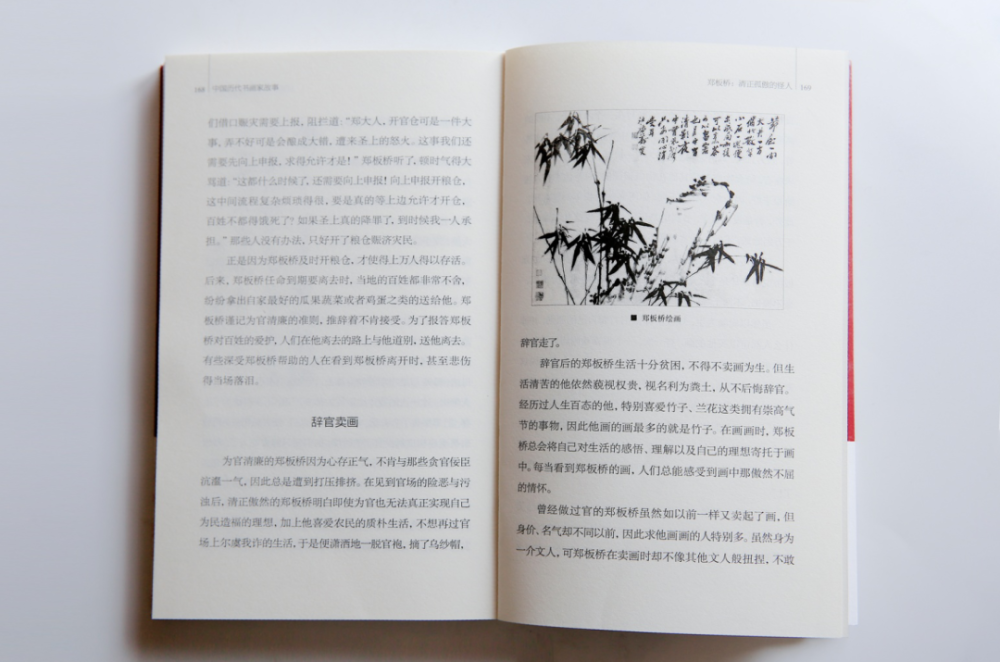 168 中国古代书画家故事
们借口赈灾需要上报，阻拦道：“郑大人，开官仓可是一件大
事，弄不好可是会酿成大错，遭来圣上的怒火。这事我们还
需要先向上申报，求得允许才是！”郑板桥听了，顿时气得大
骂道：“这都什么时候了，还需要向上申报！向上申报开粮仓，
这中间流程复杂烦琐得很，要是真的等上边允许才开仓，
百姓不都得饿死了？如果圣上真的降罪了，到时候我一人承
担。”那些人没有办法，只好开了粮仓赈济灾民。
正是因为郑板桥及时开粮仓，才使得上万人得以存活。
后来，郑板桥任命到期要离去时，当地的百姓都非常不舍，
纷纷拿出自家最好的瓜果蔬菜或者鸡蛋之类的送给他。郑
板桥谨记为官清廉的准则，推辞着不肯接受。为了报答郑板
桥对百姓的爱护，人们在他离去的路上与他道别，送他离去。
有些深受郑板桥帮助的人在看到郑板桥离开时，甚至悲伤
得当场落泪。
辞官卖画
为官清廉的郑板桥因为心存正气，不肯与那些贪官佞臣
沆瀣一气，因此总是遭到打压排挤。在见到官场的险恶与污
浊后，清正傲然的郑板桥明白即使为官也无法真正实现自己
为民造福的理想，加上他喜爱农民的质朴生活，不想再过官
场上尔虞我诈的生活，于是便潇洒地一脱官袍，摘了乌纱帽，
郑板桥：清正孤傲的怪人 169
■ 郑板桥绘画
辞官走了。
辞官后的郑板桥生活十分贫困，不得不卖画为生。但生
活清苦的他依然藐视权贵，视名利为粪土，从不后悔辞官。
经历过人生百态的他，特别喜爱竹子、兰花这类拥有崇高气
节的事物，因此他画的画最多的就是竹子。在画画时，郑板
桥总会将自己对生活的感悟、理解以及自己的理想寄托于画
中。每当看到郑板桥的画，人们总能感受到画中那傲然不屈
的情怀。
曾经做过官的郑板桥虽然如以前一样又卖起了画，但
身价、名气却不同以前，因此求他画画的人特别多。虽然身为
一介文人，可郑板桥在卖画时却不像其他文人般扭捏，不敢